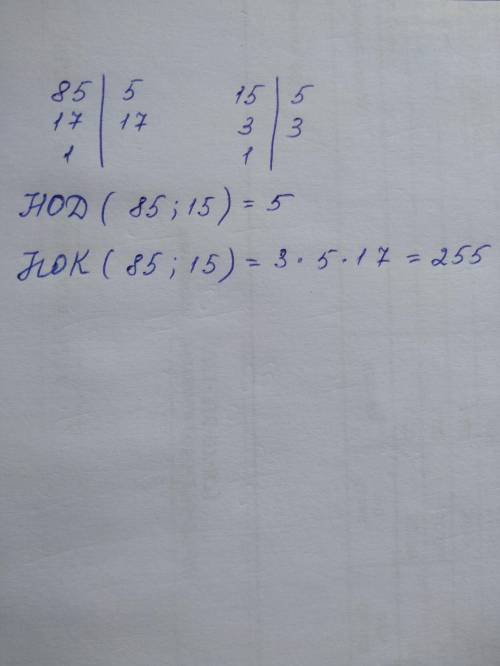 85 | 5 15 | 5
17 | 17 3 | 3
1 | 1 |
НОД ( 85 ; 15 ) = 5
НОК ( 85 ; 15 ) = 3 · 5 · 17 = 255